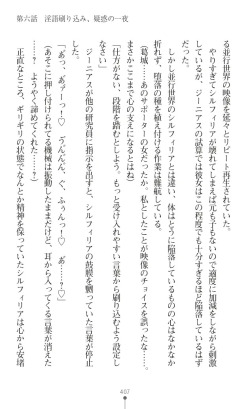 第六話　淫語刷り込み、疑惑の一夜
る並行世界の映像を延々とリピート再生されていた。
やりすぎてシルフィリアが壊れてしまえば元も子もないので適度に加減をしながら刺激
しているが、ジーニアスの試算では彼女はこの程度でも十分すぎるほど堕落している
はずだった。
しかし並行世界のシルフィリアとは違い、体はじょうに堕落しているのに心はなかなか
折れず、堕落の種を植え付ける作業は難航している。
「葛城……あのサポーターの女だったか。私としたことが映像のチョイスを誤ったな……
まさかここまで心の支えになっているとは」
「仕方がない、段階を踏むとしよう。もっと受け入れやすい言葉から刷り込むよう設定しろ」
ジーニアスが他の研究員に指示を出すと、シルフィリアの鼓膜を襲っていた言葉が停止
する。
「あっ、あァーっ♡　うんんん、ぐ、ふぅんっ♡　あ……？♡」
（あそこに押し付けられる機械は振動したままだけど、耳から入ってくる言葉が消えた
……？　ようやく諦めてくれた……？）
正直なところ、ギリギリの状態でなんとか精神を保っていたシルフィリアは心から安堵
407